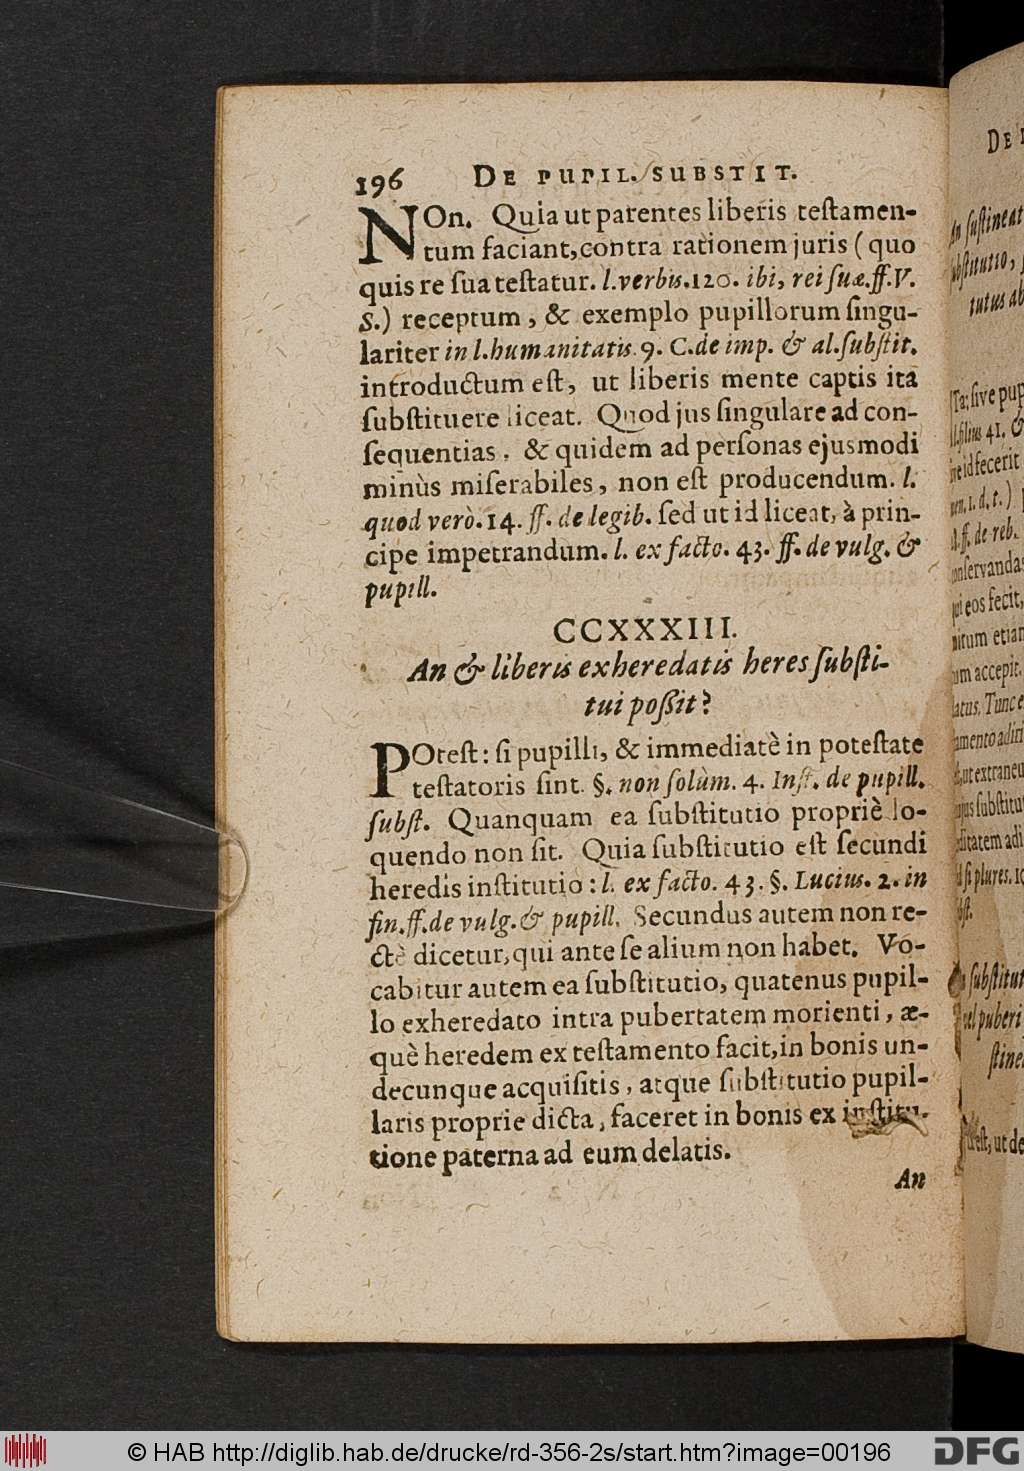 196 DE PUPIL. SUBSTIT.
NOn. Quia ut parentes liberis testamen-
tum faciant, contra rationem juris (quo
quis re sua testatur. l. verbis. 120. ibi, rei suæ. ff. V.
S.) receptum, & exemplo pupillorum singu-
lariter in l. humanitatis. 9. C. de imp. & al. substit.
introductum est, ut liberis mente captis ita
substituere liceat. Quod jus singulare ad con-
sequentias, & quidem ad personas ejusmodi
minùs miserabiles, non est producendum. l.
quod verò. 14. ff. de legib. sed ut id liceat, à prin-
cipe impetrandum. l. ex facto. 43. ff. de vulg. &
pupill.
CCXXXIII.
An & liberis exheredatis heres substi-
tui possit?
POtest: si pupilli, & immediatè in potestate
testatoris sint. §. non solùm. 4. Inst. de pupill.
subst. Quanquam ea substitutio propriè lo-
quendo non sit. Quia substitutio est secundi
heredis institutio: l. ex facto. 43. §. Lucius. 2. in
fin. ff. de vulg. & pupill. Secundus autem non re-
ctè dicetur, qui ante se alium non habet. Vo-
cabitur autem ea substitutio, quatenus pupil-
lo exheredato intra pubertatem morienti, æ-
què heredem ex testamento facit, in bonis un-
decunque acquisitis, atque substitutio pupil-
laris proprie dicta, faceret in bonis ex institu-
tione paterna ad eum delatis.
An
DE
An sustineat
substitutio,
tutus ab
Ta: sive pup
l. filius 41. &
sive id fecerit
1. d. t.)
ff. de reb.
conservandas
qui eos fecit,
nitum etiam
um accepit.
latus. Tunc e
amento adiri
ut extraneu
ujus substitu
editatem adi
si plures. 10
subst.
substitut
vel puberi
stine
est, ut de
© HAB http://diglib.hab.de/drucke/rd-356-2s/start.htm?image=00196
DFG